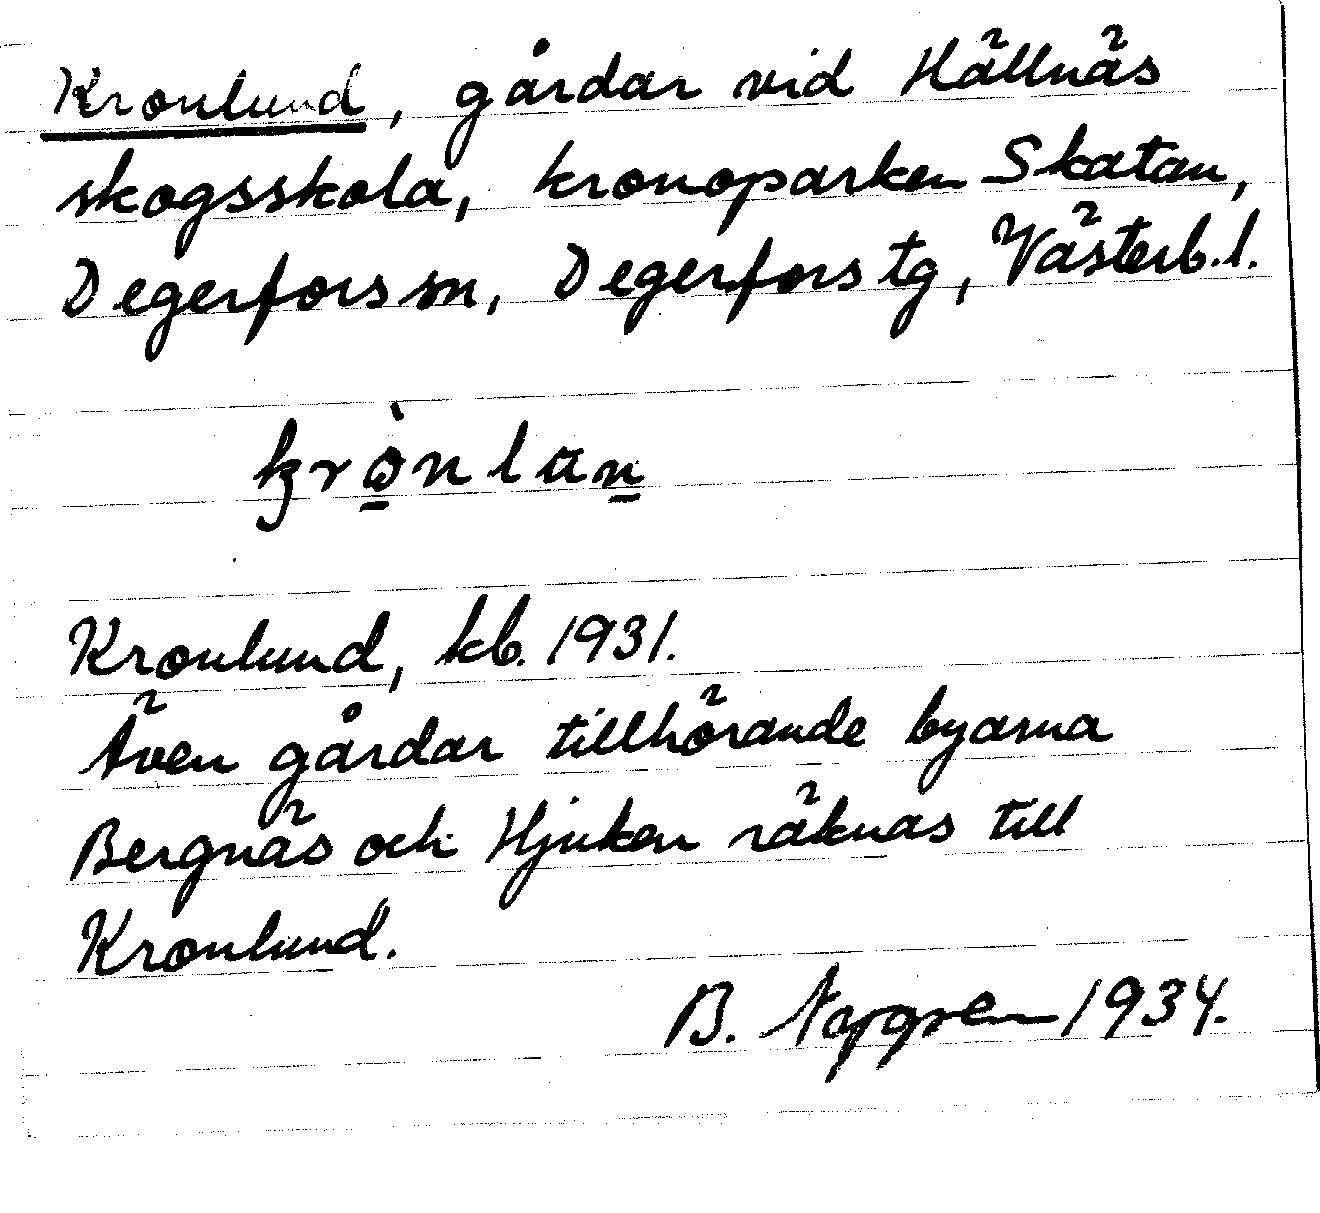 Kronlund, gårdar vid Hällnäs
skogsskola, kronoparken Skatan,
Degerfors sn, Degerfors tg, Västerb.l.
Kronlund, kb. 1931.
Även gårdar tillhörande byarna
Bergnäs och Hjuken räknas till
Kronlund.
B. Nygren 1934.